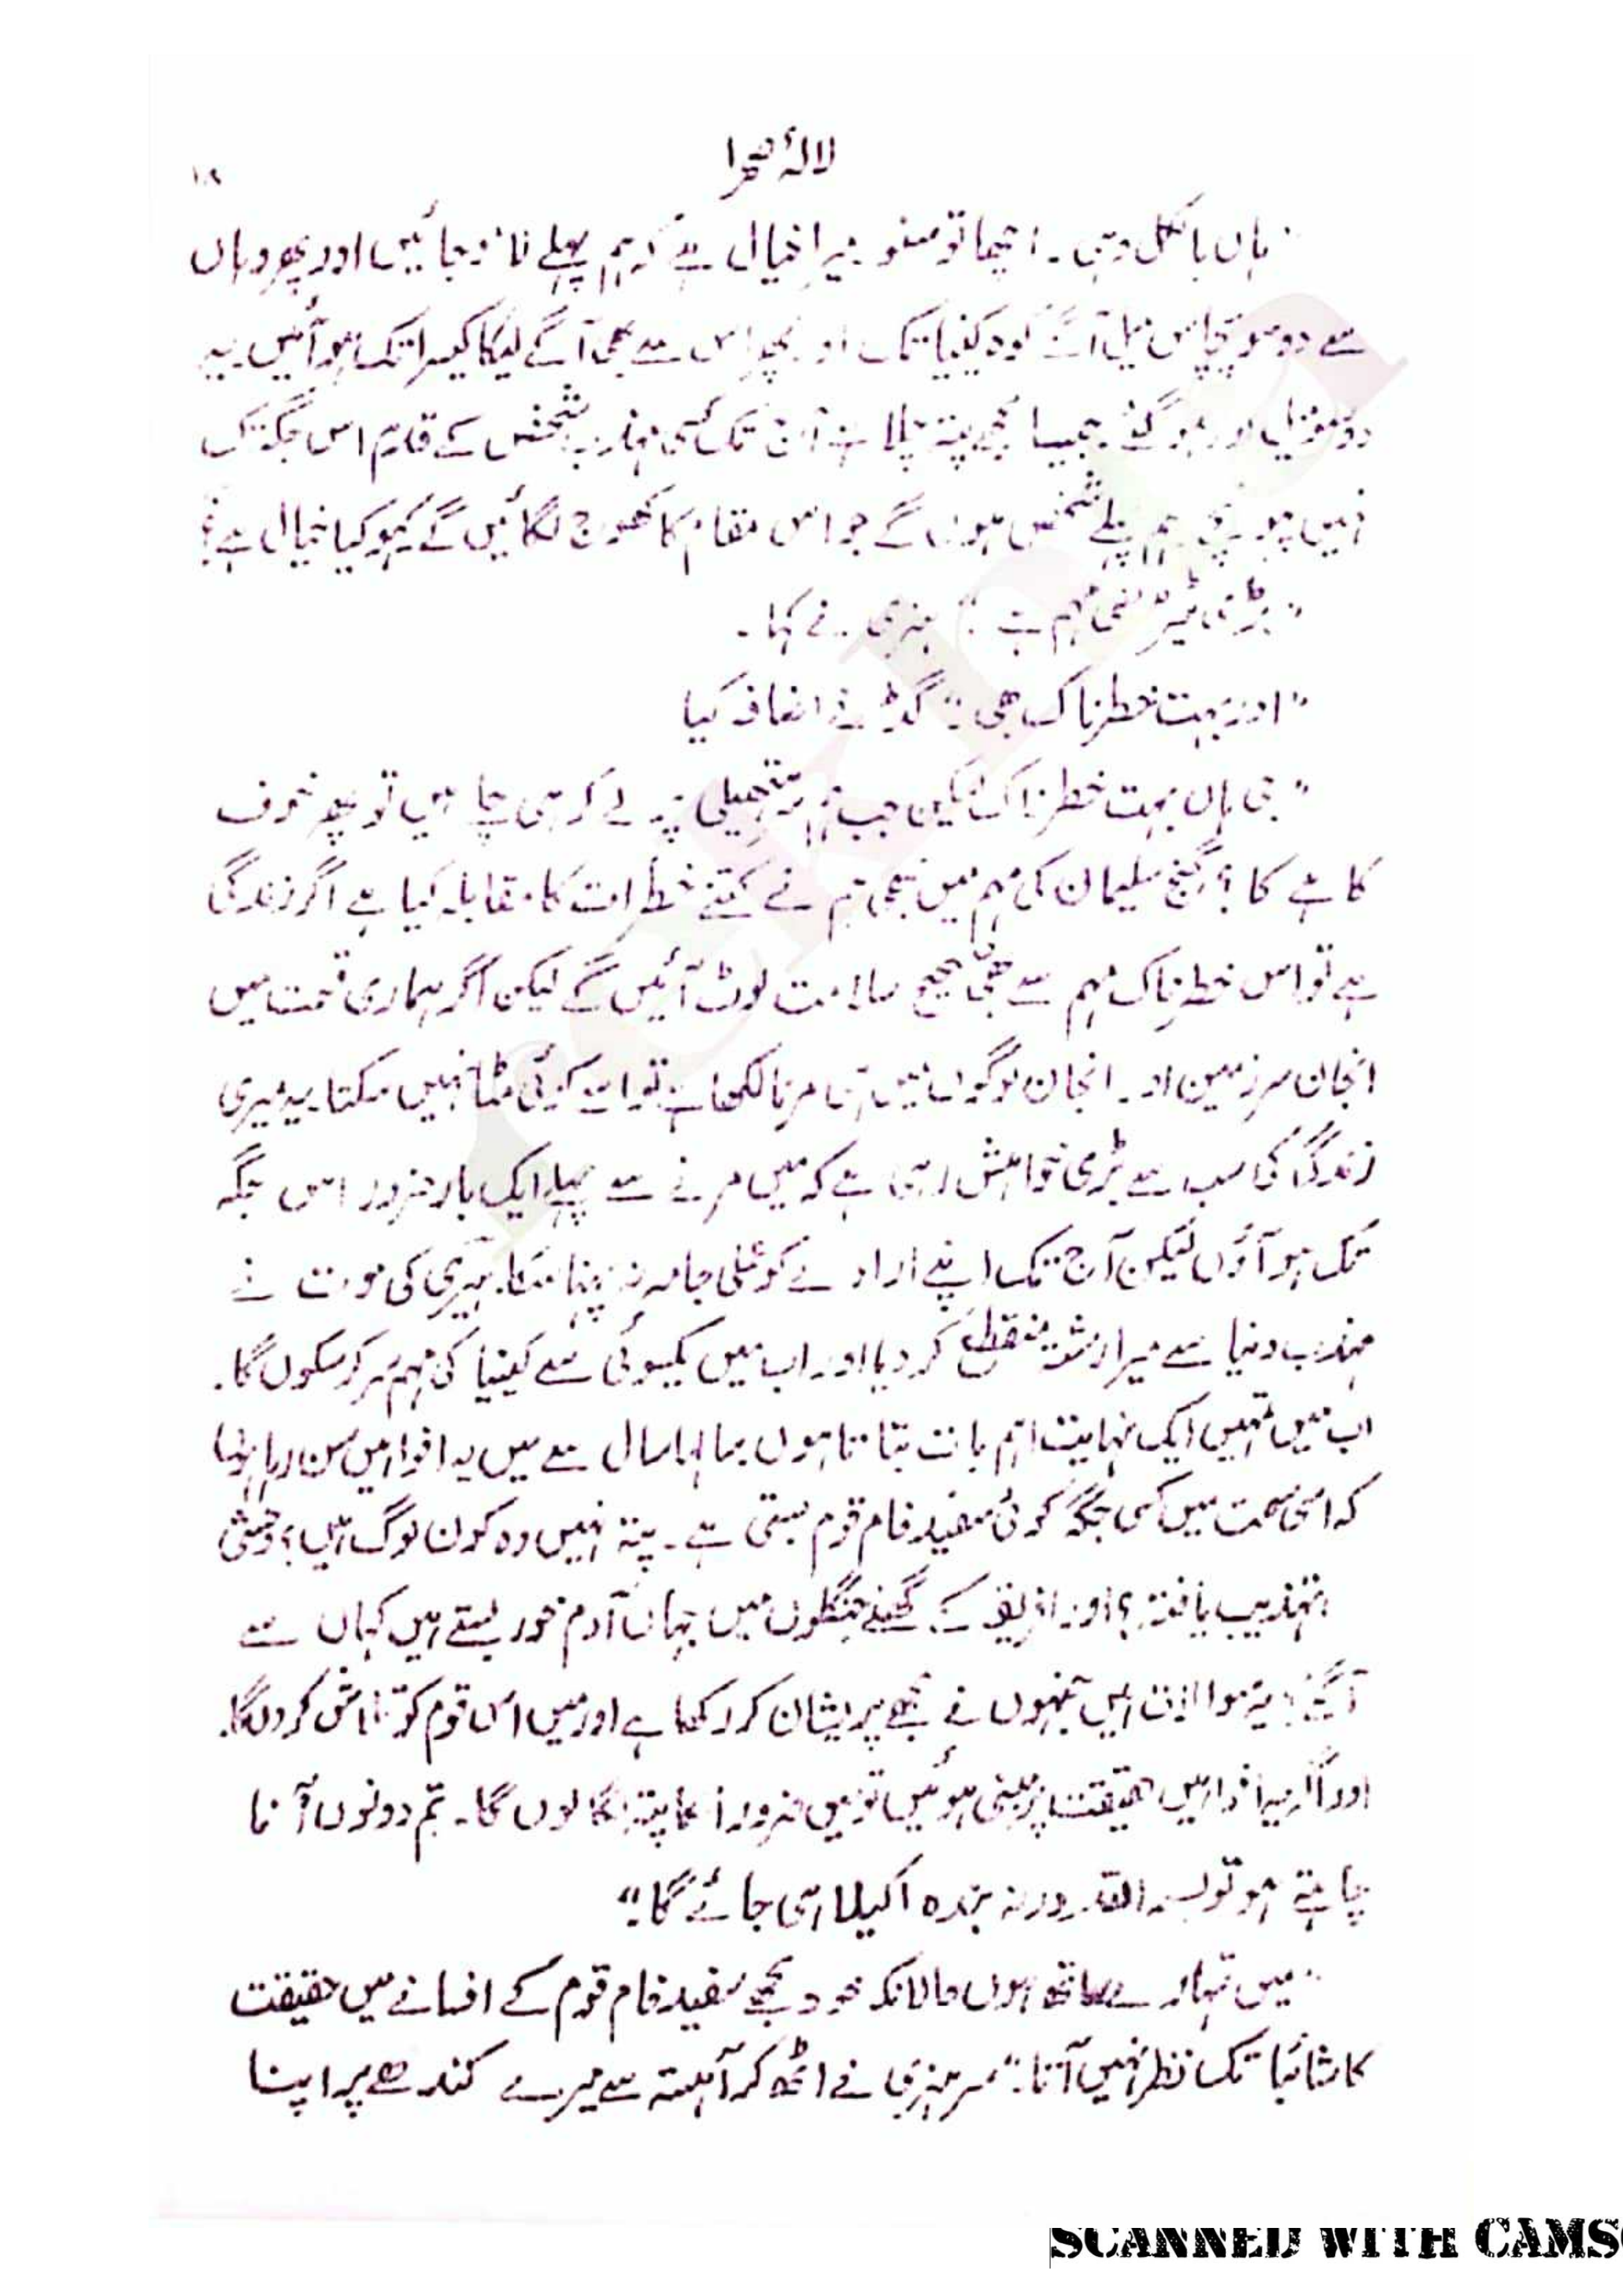 لالۂ صحرا
۱۸
ہاں بالکل وہی ۔ اچھا تو سنو میرا خیال ہے کہ ہم پہلے جائیں اور پھر وہاں
سے دو سو پچاس میل آگے کوہ کینیا تک اور پھر اس سے بھی آگے لیکاکیسرا تک ہو آئیں ۔ یہ
دو سو میل اور ہو گئے جیسا مجھے پتہ چلا ہے آج تک کسی مہذب شخص کے قدم اس جگہ تک
نہیں پہونچے ہم پہلے شخص ہوں گے جو اس مقام کا کھوج لگائیں گے کہو کیا خیال ہے؟
" بڑی ٹیڑھی مہم ہے " ہنری نے کہا ۔
" اور بہت خطرناک بھی " گڈ نے اضافہ کیا
" جی ہاں بہت خطرناک لیکن جب ہم سر ہتھیلی پر لے کر ہی چلے ہیں تو پھر خوف
کاہے کا ؟ گنج سلیمان کی مہم میں بھی ہم نے کتنے خطرات کا مقابلہ کیا ہے اگر زندگی
ہے تو اس خطرناک مہم سے بھی صحیح سلامت لوٹ آئیں گے لیکن اگر ہماری قسمت میں
انجان سرزمین اور انجان لوگوں میں ہی مرنا لکھا ہے تو اسے کوئی مٹا نہیں سکتا یہ میری
زندگی کی سب سے بڑی خواہش رہی ہے کہ میں مرنے سے پہلے ایک بار ضرور اس جگہ
تک ہو آؤں لیکن آج تک اپنے ارادے کو عملی جامہ نہ پہنا سکا ۔ ہیری کی موت نے
مہذب دنیا سے میرا رشتہ منقطع کر دیا اور اب میں یکسوئی سے کینیا کی مہم سر کر سکوں گا ۔
اب میں تمہیں ایک نہایت اہم بات بتاتا ہوں سالہا سال سے میں یہ افواہیں سن رہا ہوں
کہ اسی سمت میں کسی جگہ کوئی سفید فام قوم بستی ہے ۔ پتہ نہیں وہ کون لوگ ہیں ؟ وحشی
تہذیب یافتہ ؟ اور افریقہ کے گھنے جنگلوں میں جہاں آدم خور بستے ہیں کہاں سے
آگئے ؟ یہ سوالات ہیں جنہوں نے مجھے پریشان کر رکھا ہے اور میں اس قوم کو تلاش کروں گا ۔
اور اگر یہ افواہیں حقیقت پر مبنی ہوئیں تو میں ضرور انکا پتہ لگا لوں گا ۔ تم دونوں آنا
چاہتے ہو تو بسم اللہ ورنہ بندہ اکیلا ہی جائے گا ۔"
" میں تمہارے ساتھ ہوں حالانکہ خود مجھے سفید فام قوم کے افسانے میں حقیقت
کا شائبا تک نظر نہیں آتا ۔" سر ہنری نے اٹھ کر آہستہ سے میرے کندھے پر اپنا
SCANNED WITH CAMS